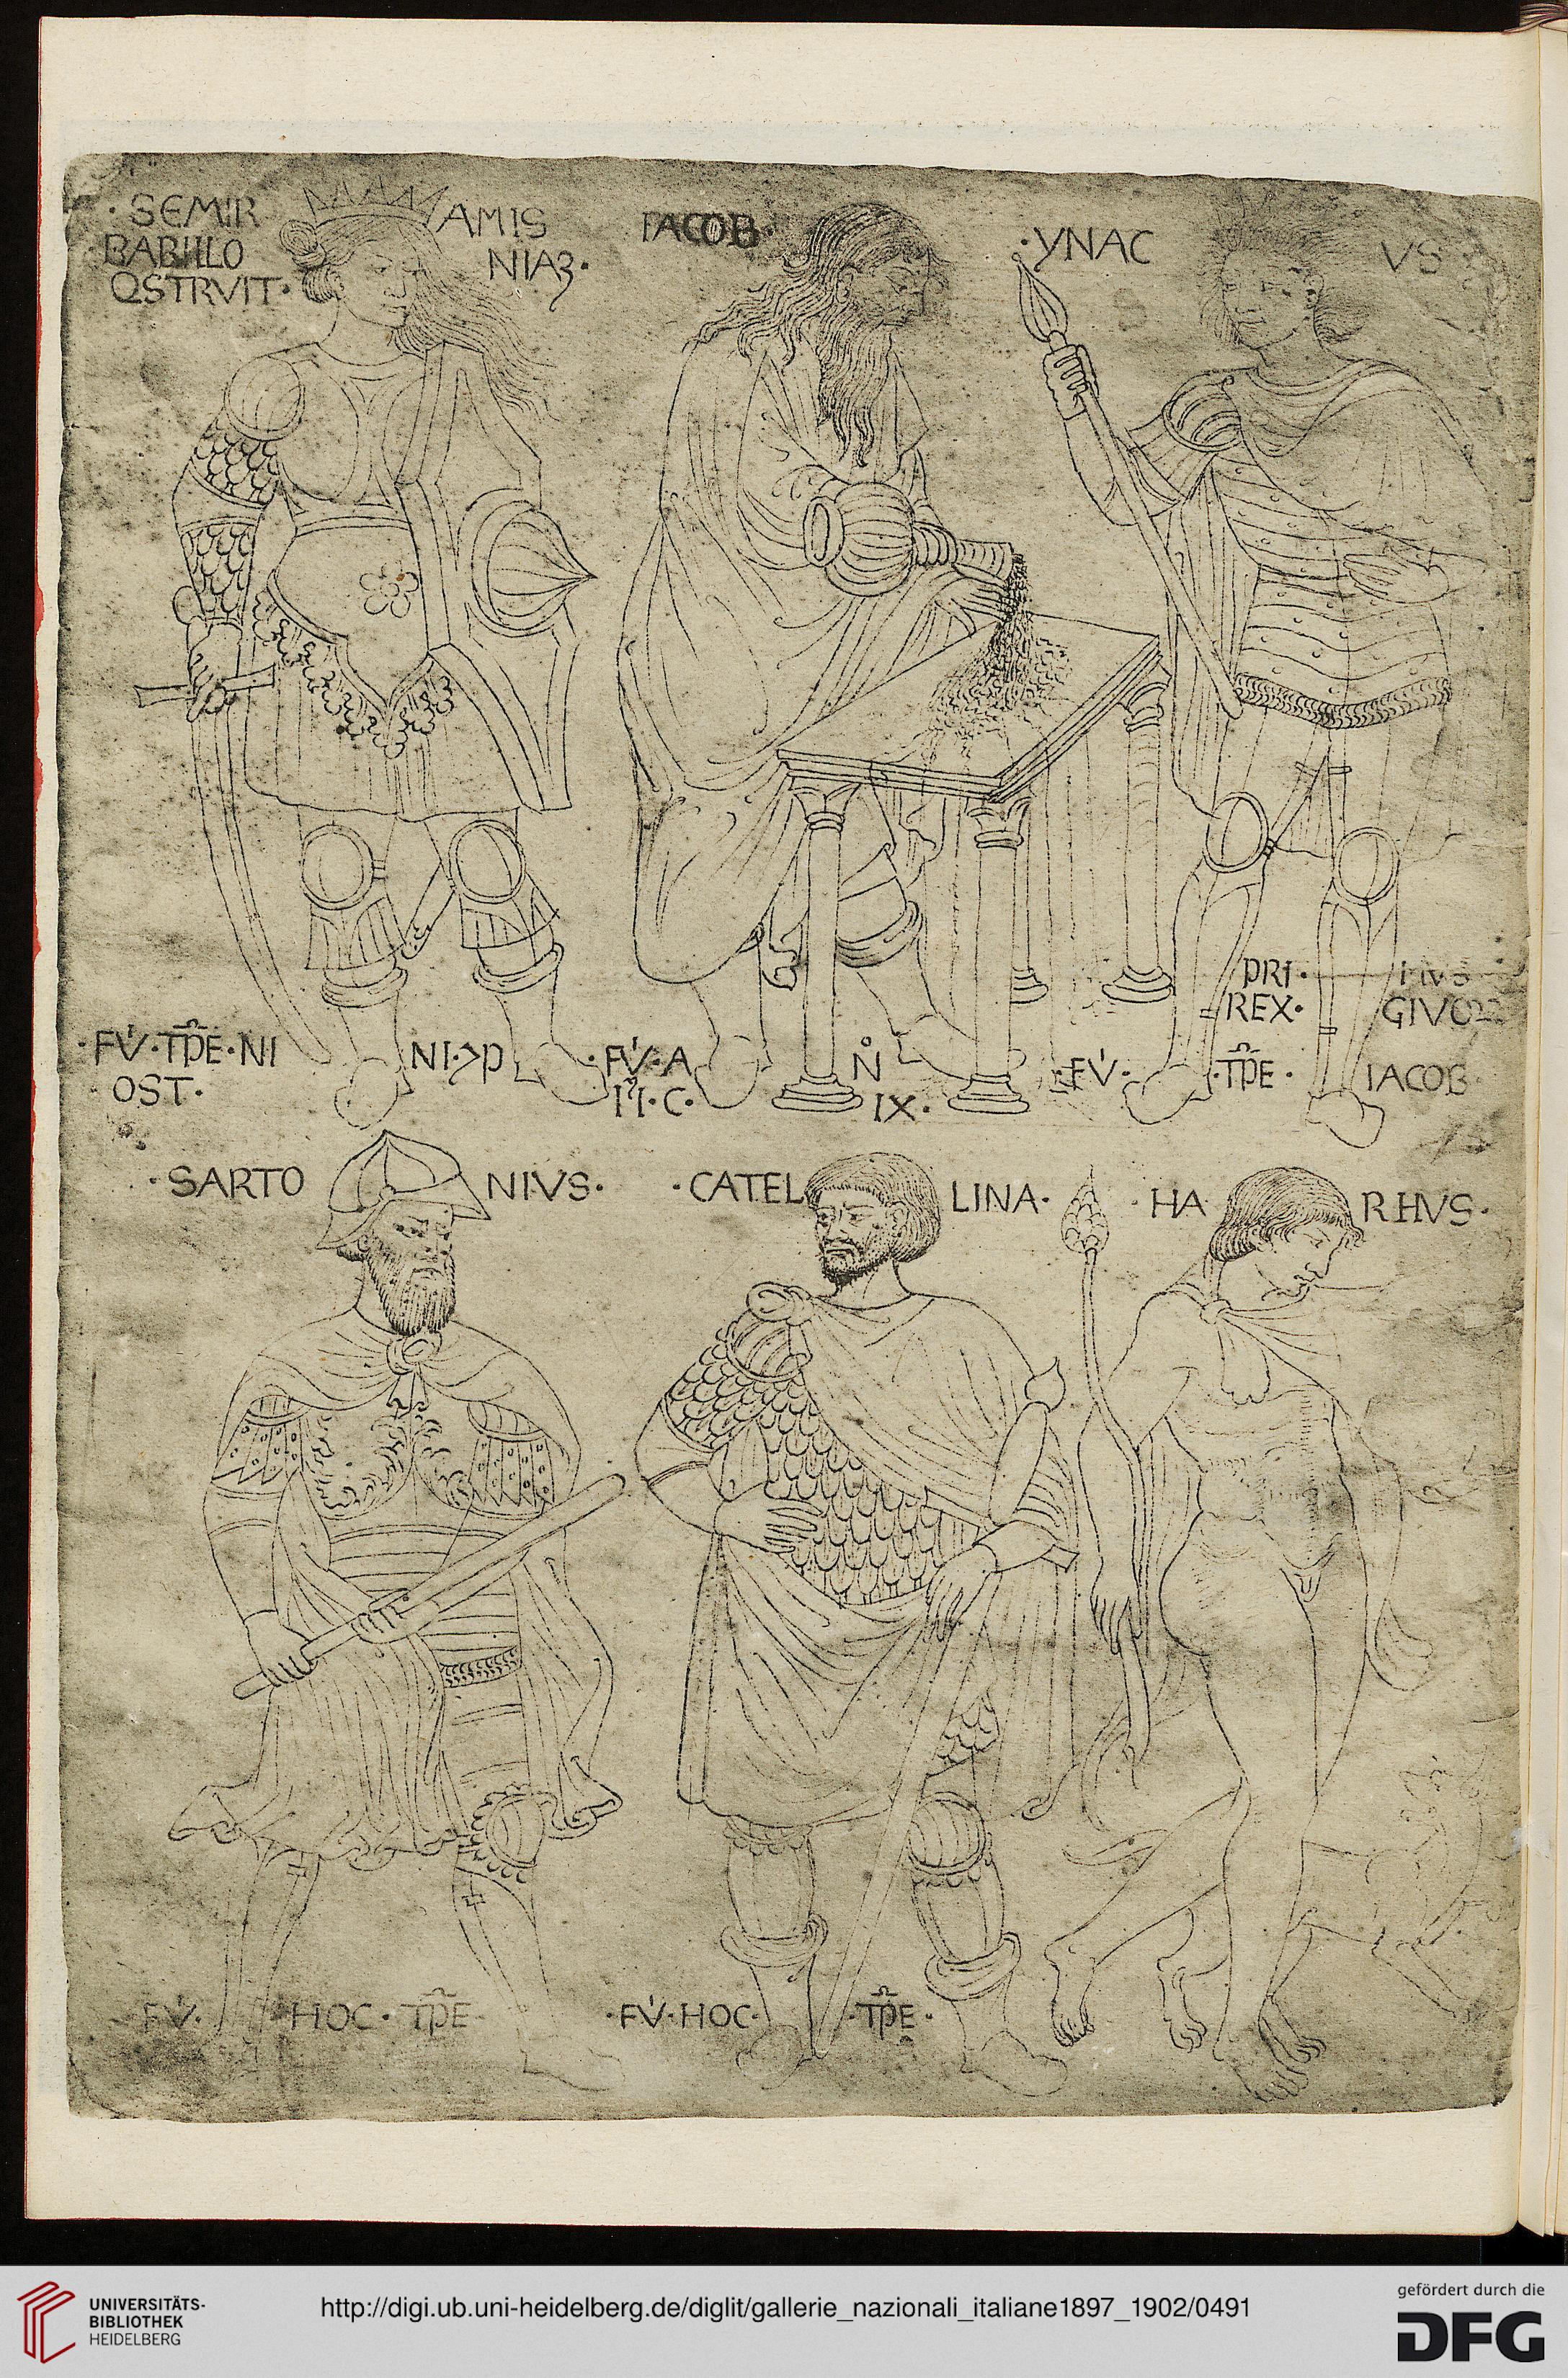 · SEMIR AMIS
BABIILLO NIAꝫ ·
QSTRVIT ·
IACOB ·
· YNAC VS
PRI · MVS
REX · GIVO
· FV́ · TP̃E · NI NI · P
OST ·
· FV́ · A N̊
C · IX ·
· FV́ · · TP̃E · IACOB
· SARTO NIVS ·
· CATEL LINA ·
· HA RHVS ·
FV́ · HOC · TP̃E
· FV́ · HOC · · TP̃E ·
UNIVERSITÄTS-
BIBLIOTHEK
HEIDELBERG
http://digi.ub.uni-heidelberg.de/diglit/gallerie_nazionali_italiane1897_1902/0491
gefördert durch die
DFG